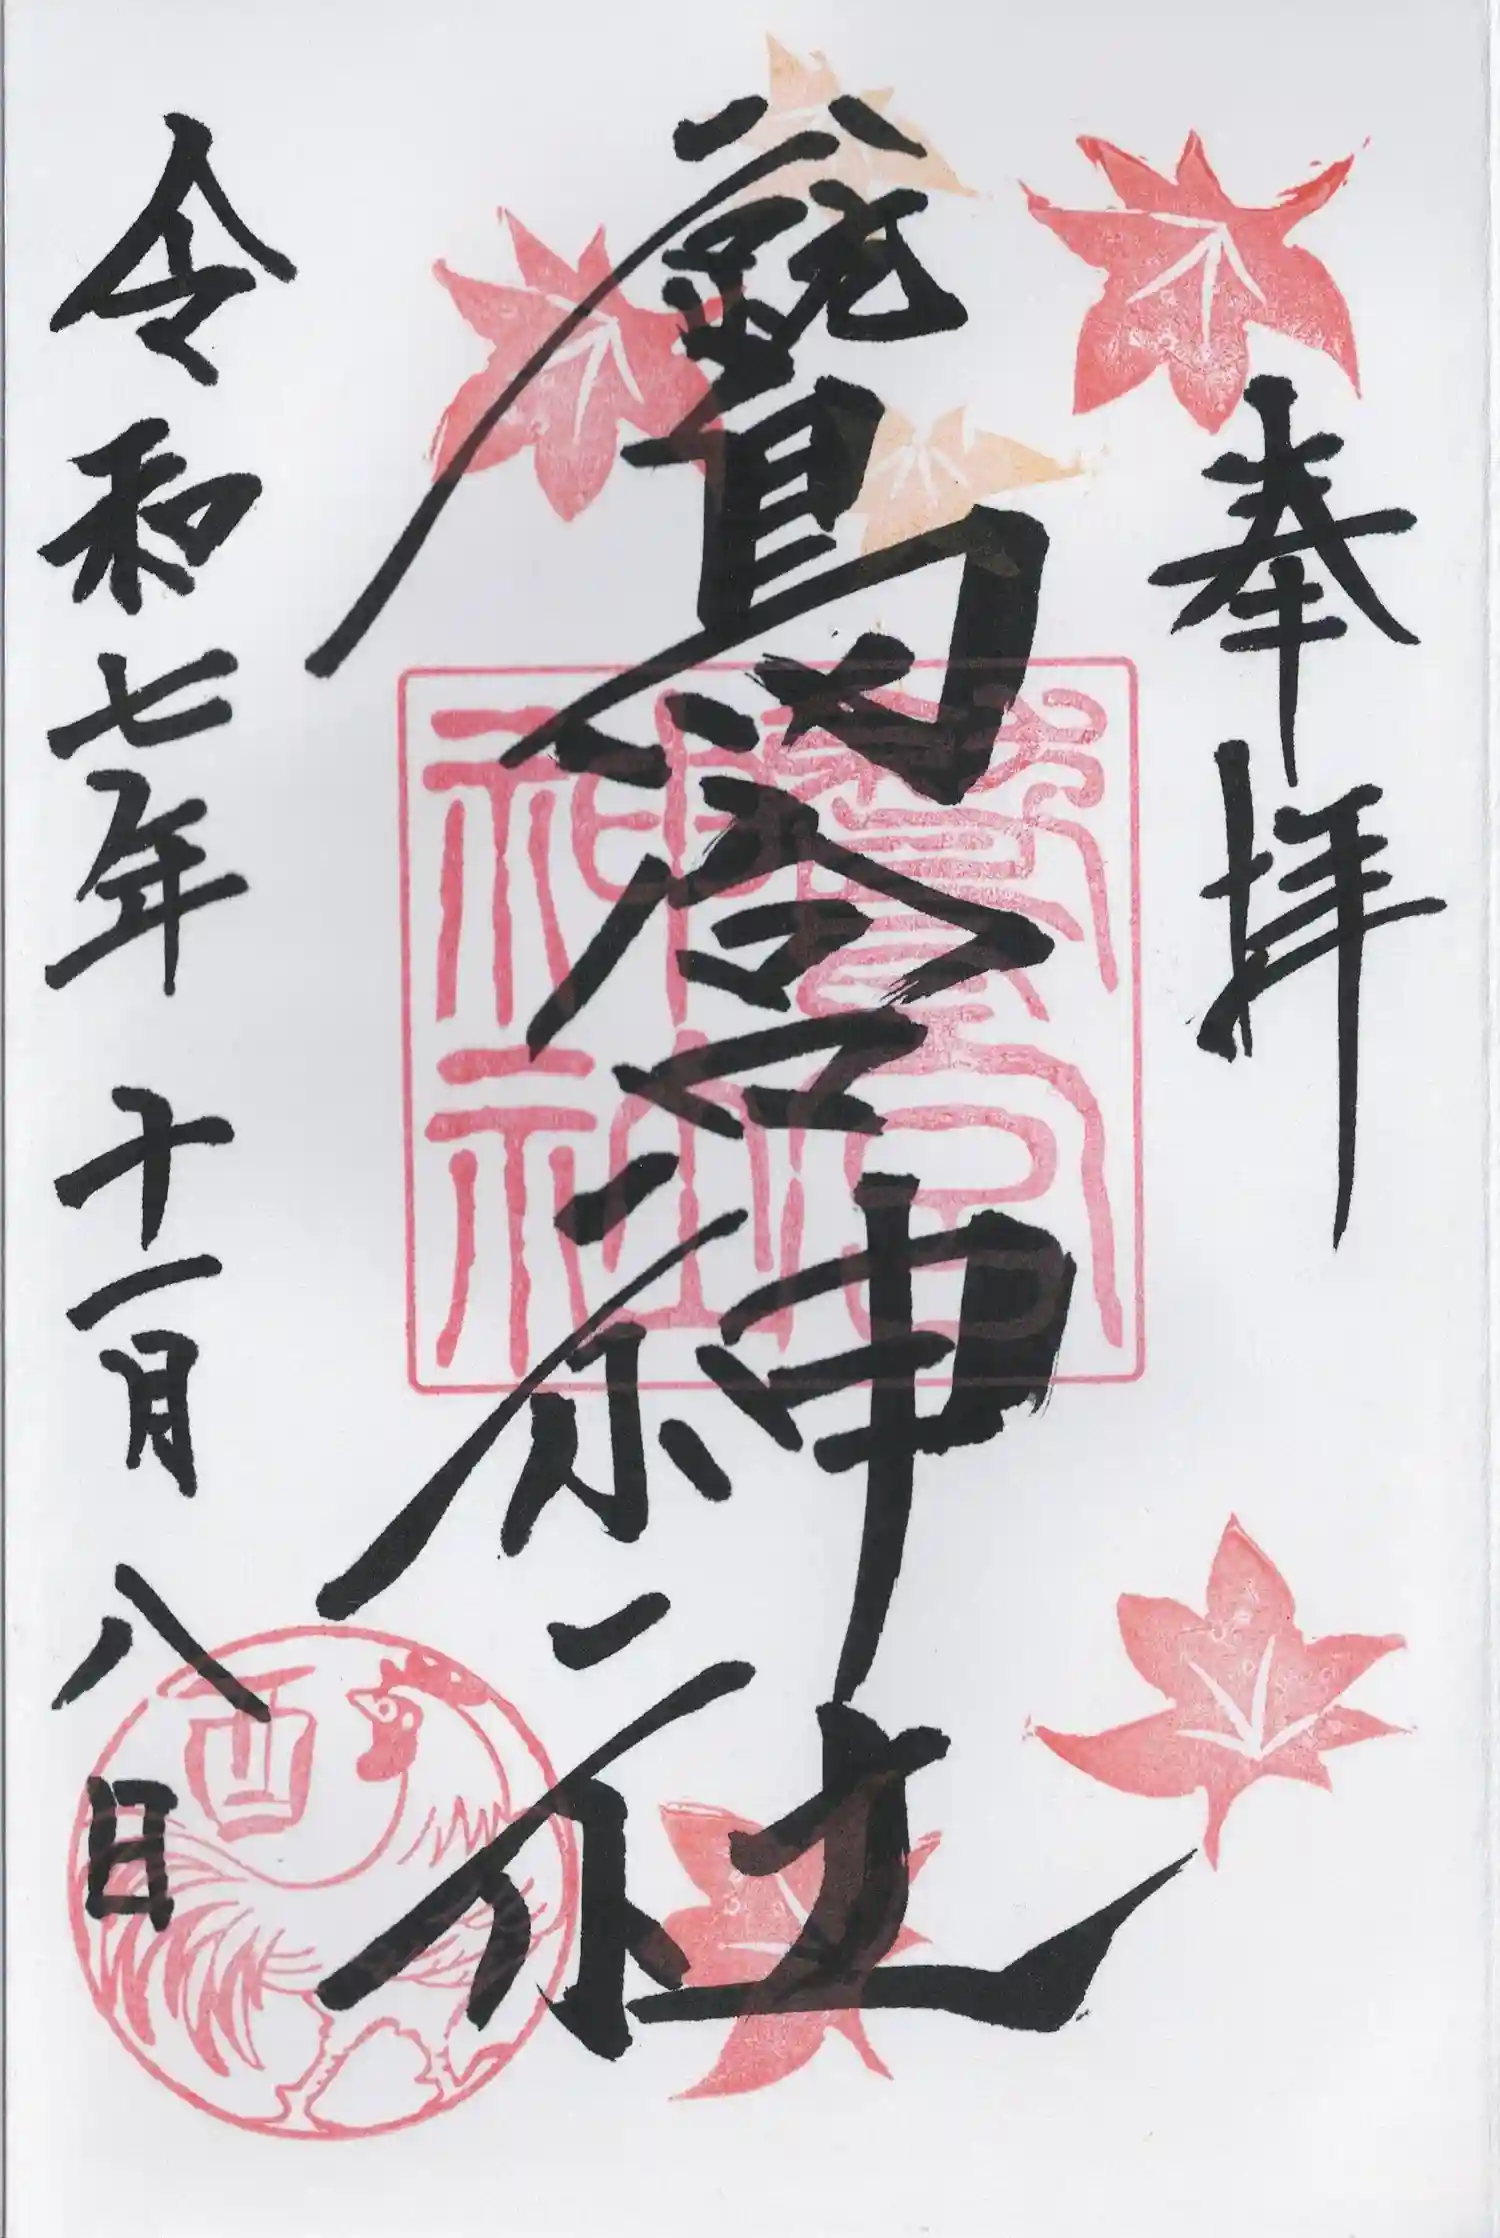 奉拝
鷲宮神社
令和七年 十一月 八日
鷲宮
神社
酉